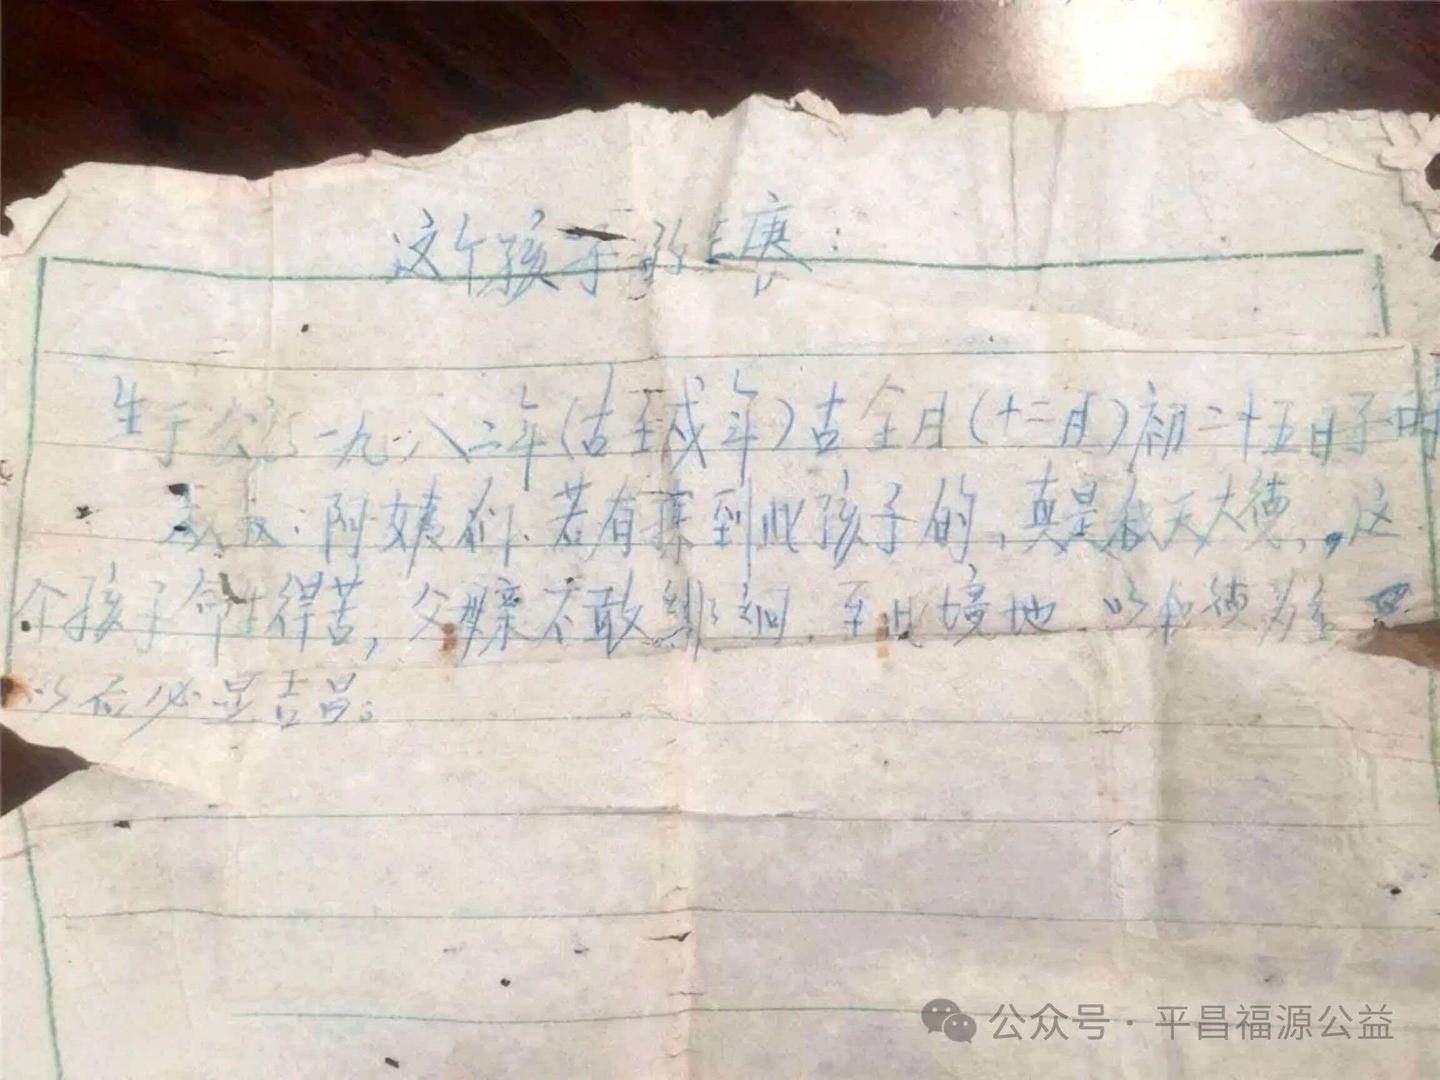 这个孩子的生庚：
生于公历一九八二年（古壬戌年）古全月（十二月）初二十五日子时
叔叔、阿姨们、若有捡到此孩子的，真是 天大德，这
个孩子命生得苦，父母亲不敢 回，至此境地
以后必显吉昌。
公众号·平昌福源公益